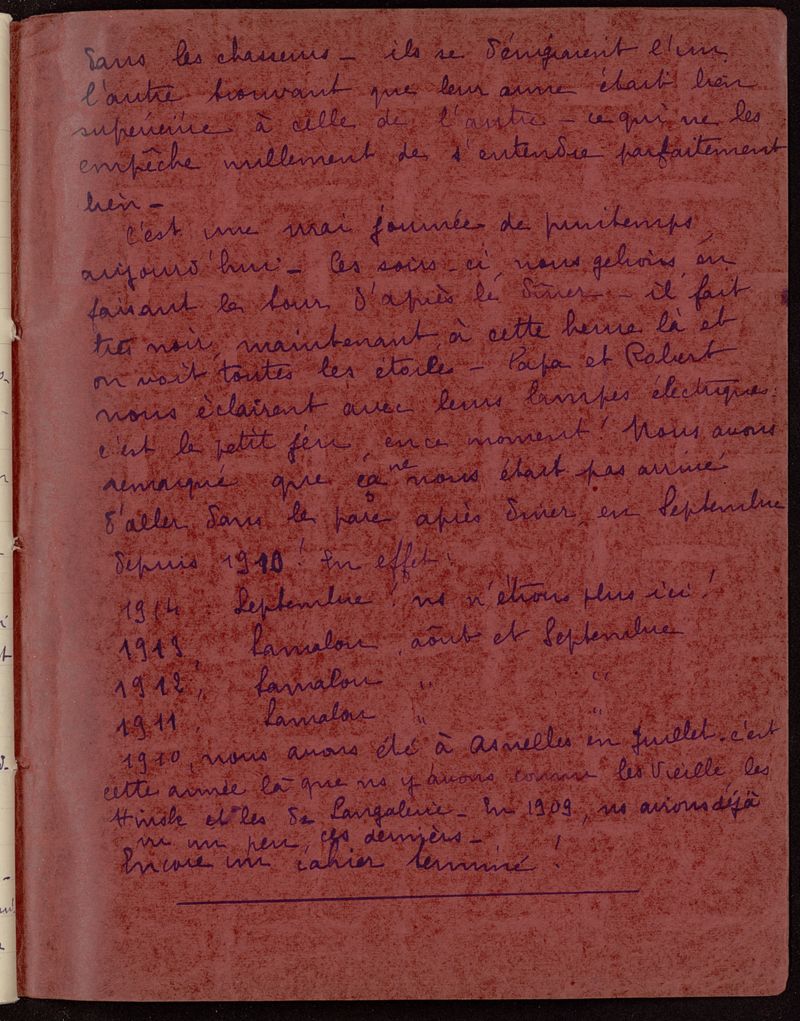 dans les chasseurs - ils se dénigraient l'un
l'autre trouvant que leur arme était bien
supérieure à celle de l'autre - ce qui ne les
empêche nullement de s'entendre parfaitement
bien -
C'est une vrai journée de printemps
aujourd'hui - Ces soirs-ci, nous gelions en
faisant le tour d'après le dîner - il fait
très noir, maintenant, à cette heure là et
on voit toutes les étoiles - Papa et Robert
nous éclairent avec leurs lampes électriques:
c'est le petit jeu en ce moment! Nous avons
remarqué que ça ne nous était pas arrivé
d'aller dans le parc après dîner, en Septembre
depuis 1910! En effet:
1914. Septembre! ns n'étions plus ici!
1913, Lamalou, août et Septembre
1912, Lamalou " "
1911, Lamalou " "
1910, nous avons été à Asnelles en Juillet - c'est
cette année là que ns y avons connu les Vieille, les
et les de - En 1909, ns avions déjà
vu un peu, ces derniers -
Encore un cahier terminé!